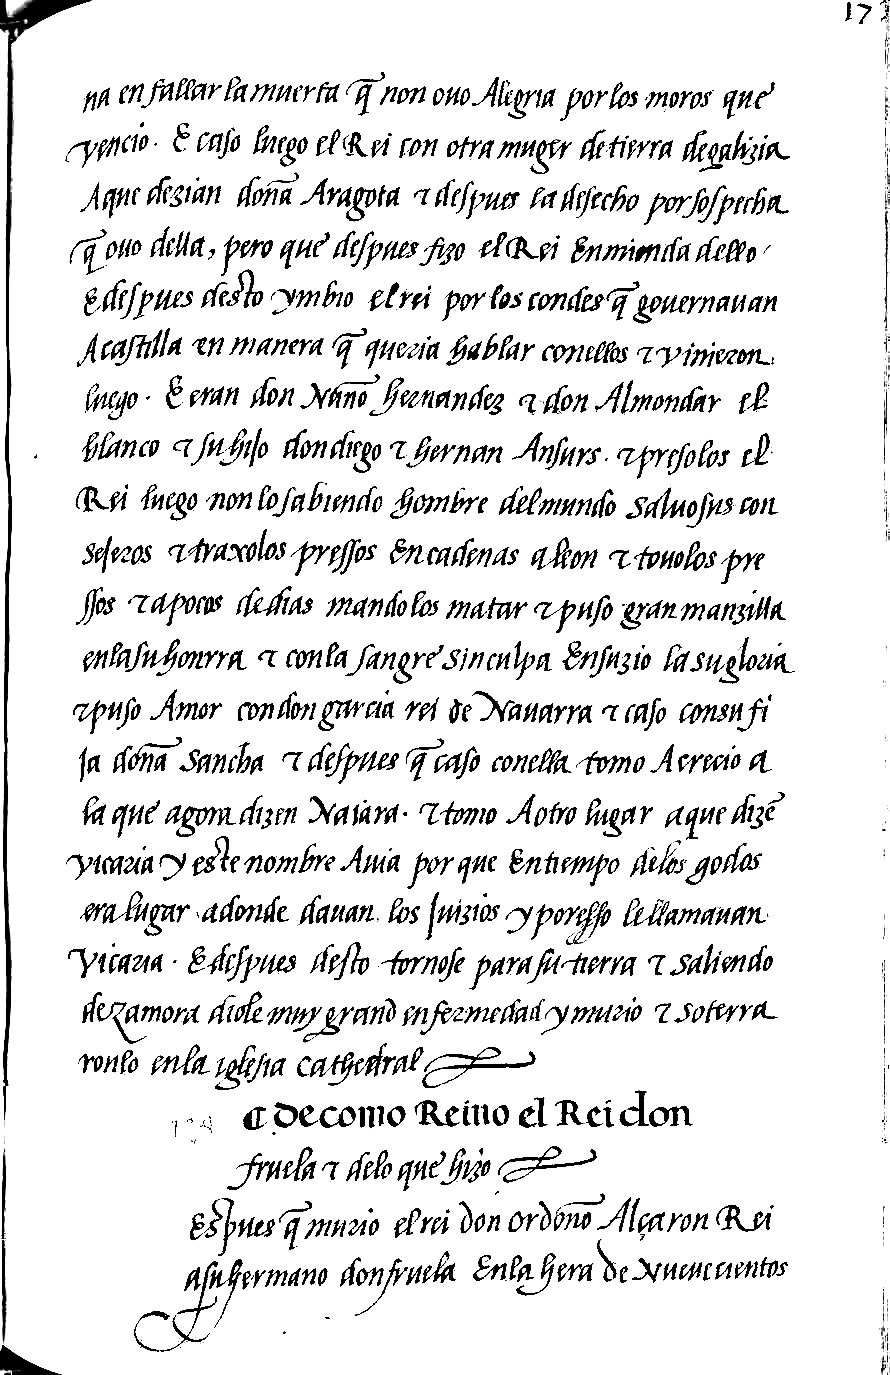 17
na en fallar la muerta q̃ non ouo Alegria por los moros que
vencio. E caso luego el Rei con otra muger de tierra de galizia
Aque dezian doña Aragota ⁊ despues la desecho por sospecha
q̃ ouo della, pero que despues fizo el Rei Enmienda dello
E despues desto ymbio el rei por los condes q̃ gouernauan
A castilla en manera q̃ queria hablar conellos ⁊ vinieron
luego. E eran don Nuño hernandez ⁊ don Almondar el
blanco ⁊ su hijo don diego ⁊ hernan Ansurs. ⁊ presolos el
Rei luego non lo sabiendo hombre del mundo saluo sus con
sejeros ⁊ traxolos pressos En cadenas a leon ⁊ touolos pre
ssos ⁊ a pocos de dias mandolos matar ⁊ puso gran manzilla
en la su honrra ⁊ con la sangre sin culpa Ensuzio la su gloria
⁊ puso Amor con don garcia rei de Nauarra ⁊ caso con su fi
ja doña Sancha ⁊ despues q̃ caso conella tomo A crecio a
la que agora dizen Naiara. ⁊ tomo A otro lugar a que dizẽ
vicaria y este nombre Auia por que En tiempo delos godos
era lugar adonde dauan los Juizios y por esso le llamauan
Vicaria. E despues desto tornose para su tierra ⁊ saliendo
de Zamora diole muy grand enfermedad y murio ⁊ soterra
ronlo en la iglesia cathedral
¶ De como Reino el Rei don
fruela ⁊ delo que hizo
Espues q̃ murio el rei don ordoño Alçaron Rei
a su hermano don fruela En la hera de Nueuecientos